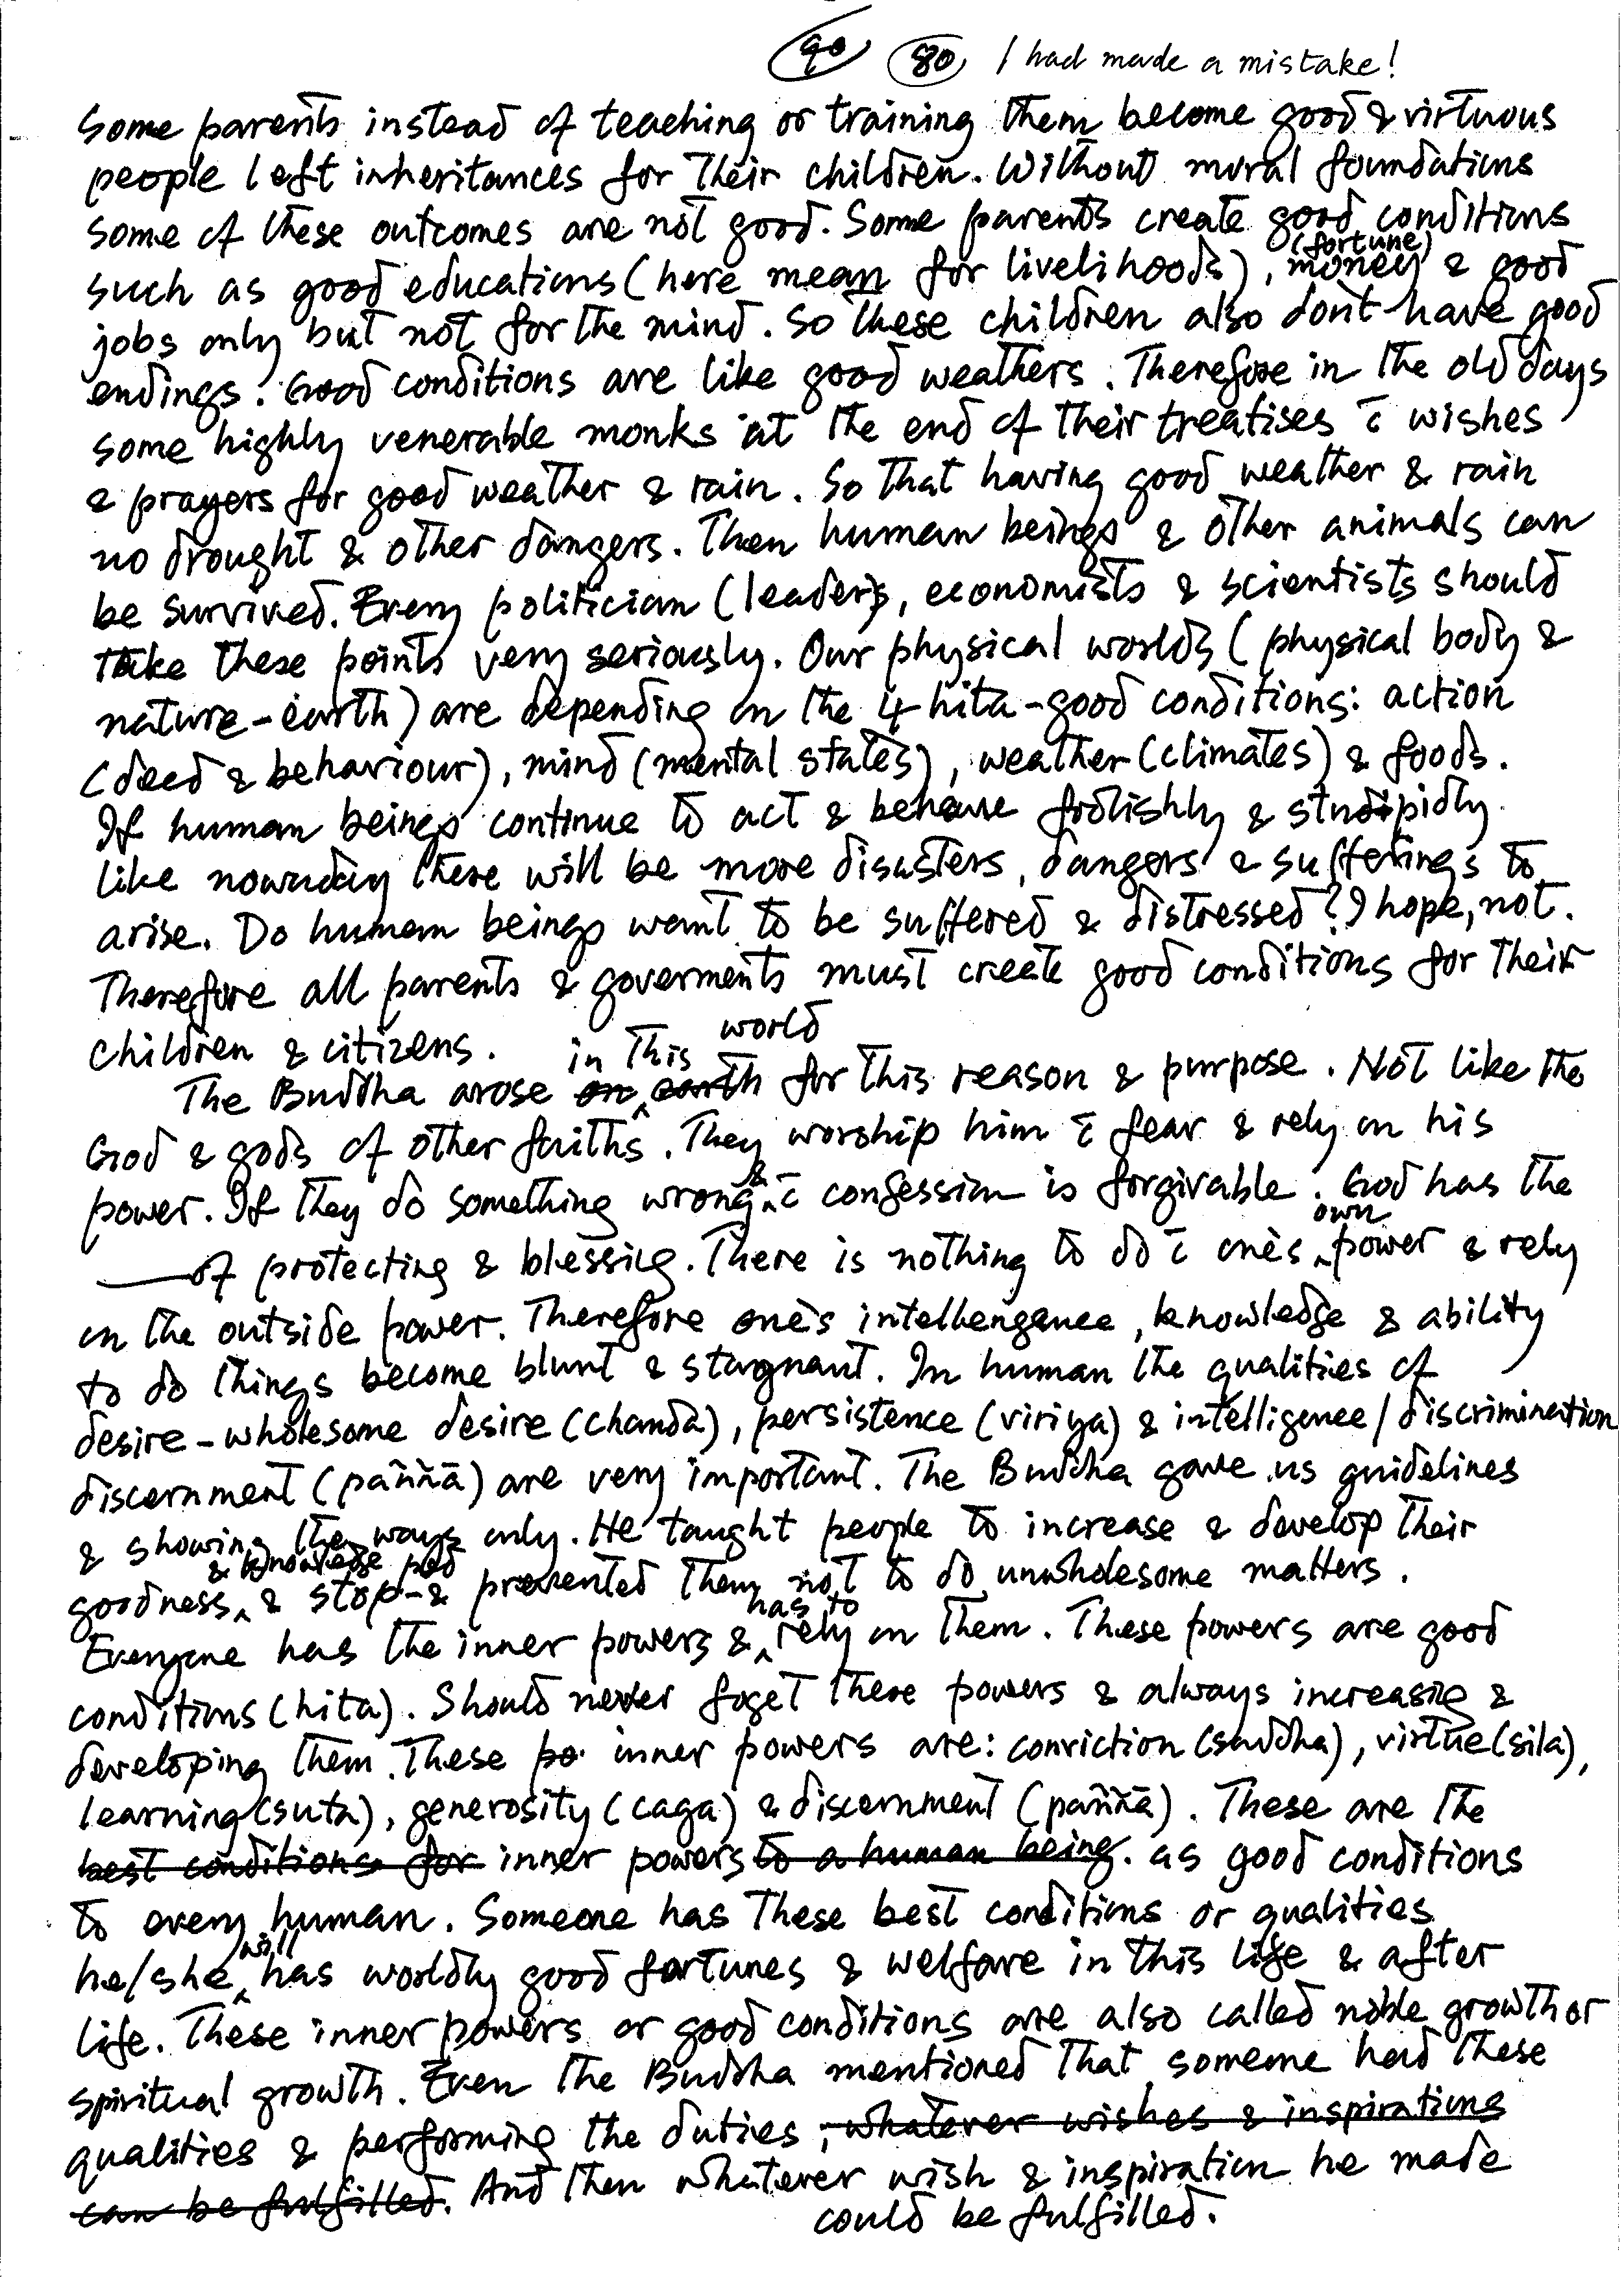 90 80 I had made a mistake!
Some parents instead of teaching or training them become good & virtuous
people left inheritances for their children. Without moral foundations
some of these outcomes are not good. Some parents create good conditions
(fortune)
such as good educations (here mean for livelihoods), money & good
jobs only but not for the mind. So these children also don't have good
endings. Good conditions are like good weathers. Therefore in the old days
some highly venerable monks at the end of their treatises c̄ wishes
& prayers for good weather & rain. So that having good weather & rain
no drought & other dangers. Then human beings & other animals can
be survived. Every politician (leader), economists & scientists should
take these points very seriously. Our physical worlds (physical body &
nature-earth) are depending on the 4 hita-good conditions: action
(deed & behaviour), mind (mental states), weather (climates) & foods.
If human beings continue to act & behave foolishly & stupidly
like nowaday there will be more disasters, dangers & sufferings to
arise. Do human beings want to be suffered & distressed? I hope, not.
Therefore all parents & goverments must create good conditions for their
children & citizens.
in this world
The Buddha arose on earth for this reason & purpose. Not like the
God & gods of other faiths. They worship him c̄ fear & rely on his
power. If they do something wrong & c̄ confession is forgivable. God has the
own
—of protecting & blessing. There is nothing to do c̄ one's power & rely
on the outside power. Therefore one's intellengence, knowledge & ability
to do things become blunt & stagnant. In human the qualities of
desire-wholesome desire (chanda), persistence (viriya) & intelligence/discrimination
discernment (paññā) are very important. The Buddha gave us guidelines
& showing the ways only. He taught people to increase & develop their
& knowledge
goodness & stop-& prevented them not to do unwholesome matters.
has to
Everyone has the inner powers & rely on them. These powers are good
conditions (hita). Should never foget these powers & always increasing &
developing them. These po. inner powers are: conviction (saddha), virtue (sila),
learning (suta), generosity (caga) & discernment (paññā). These are the
best conditions for inner powers to a human being. as good conditions
to every human. Someone has these best conditions or qualities
will
he/she has worldly good fortunes & welfare in this life & after
life. These inner powers or good conditions are also called noble growth or
spiritual growth. Even the Buddha mentioned that someone had these
qualities & performing the duties, whatever wishes & inspirations
can be fulfilled. And then whatever wish & inspiration he made
could be fulfilled.